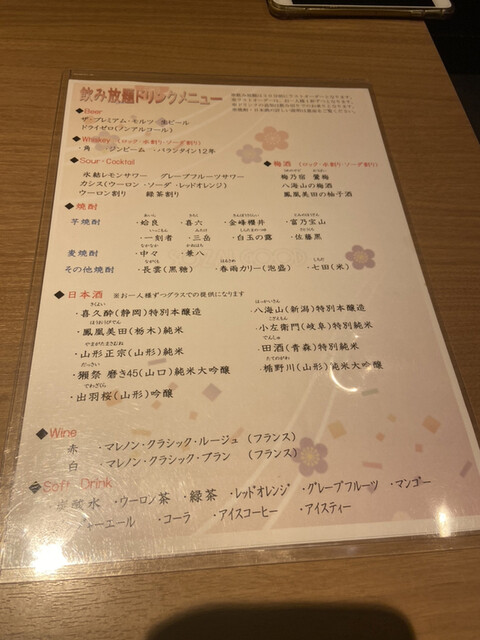 飲み放題ドリンクメニュー
◆Beer
ザ・プレミアム・モルツ 生ビール
ドライゼロ(ノンアルコール)
◆Whiskey (ロック・水割り・ソーダ割り)
・角 ・ジンビーム ・バランタイン12年
◆Sour・Cocktail
氷結レモンサワー グレープフルーツサワー
カシス(ウーロン・ソーダ・レッドオレンジ)
ウーロン割り 緑茶割り
◆梅酒 (ロック・水割り・ソーダ割り)
梅乃宿 鶯梅
八海山の梅酒
鳳凰美田の柚子酒
◆焼酎
芋焼酎 ・蛤良 ・喜六 ・金峰櫻井 ・富乃宝山
・一刻者 ・三岳 ・白玉の露 ・佐藤黒
麦焼酎 ・中々 ・兼八
その他焼酎 ・長雲(黒糖) ・春雨カリー(泡盛) ・七田(米)
◆日本酒 ※お一人様ずつグラスでの提供になります
・喜久酔(静岡)特別本醸造
・鳳凰美田(栃木)純米
・山形正宗(山形)純米
・獺祭 磨き45(山口)純米大吟醸
・出羽桜(山形)吟醸
・八海山(新潟)特別本醸造
・小左衛門(岐阜)特別純米
・田酒(青森)特別純米
・楯野川(山形)純米大吟醸
◆Wine
赤 ・マレノン・クラシック・ルージュ (フランス)
白 ・マレノン・クラシック・ブラン (フランス)
Soft Drink
・ウーロン茶 ・緑茶 ・レッドオレンジ ・グレープフルーツ ・マンゴー
・コーラ ・アイスコーヒー ・アイスティー